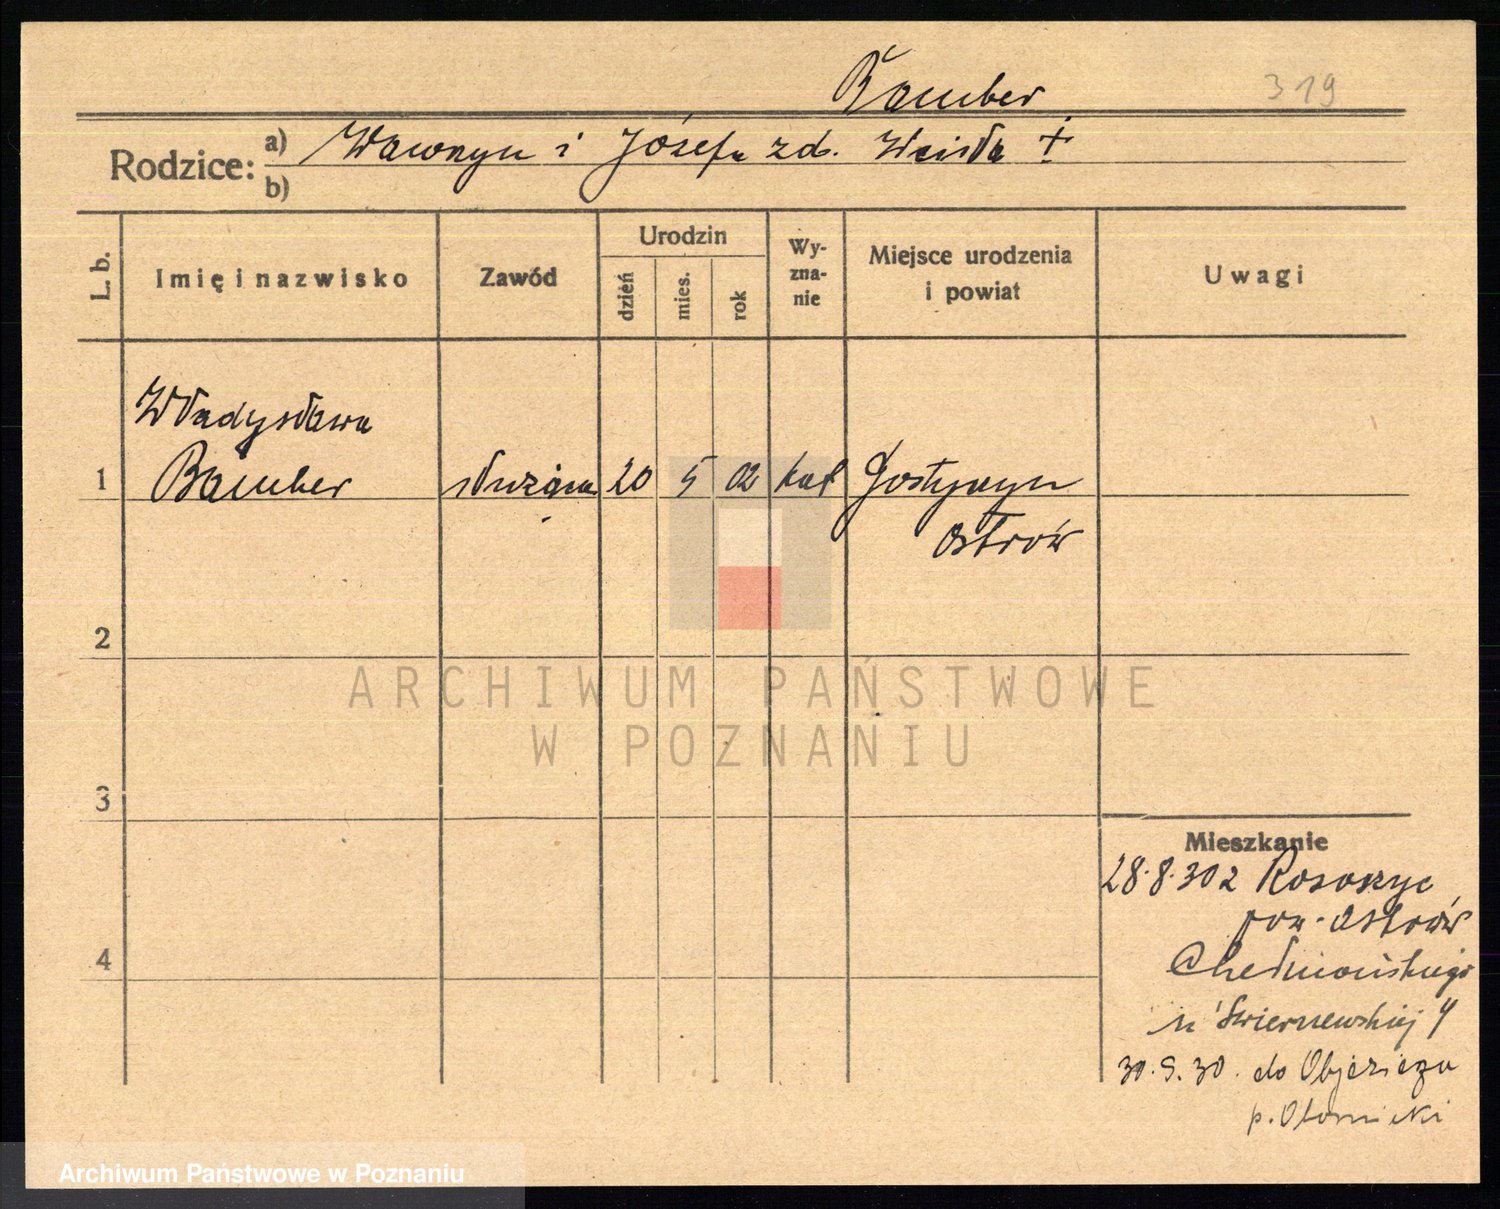 Bamber
319
Rodzice: a) Wawrzyn i Józefa zd.
b)
L. b.
Imię i nazwisko
Zawód
Urodzin
dzień
mies.
rok
Wy-
zna-
nie
Miejsce urodzenia
i powiat
Uwagi
Władysława
1 Bamber służąca 20 5 02 kat Gostyczyn
Ostrów
2
3
4
Mieszkanie
28.8.30 z Rososzyc
pow. Ostrów
Chełmońskiego
30.9.30. do Objezierza
p. Oborniki
ARCHIWUM PAŃSTWOWE
W POZNANIU
Archiwum Państwowe w Poznaniu